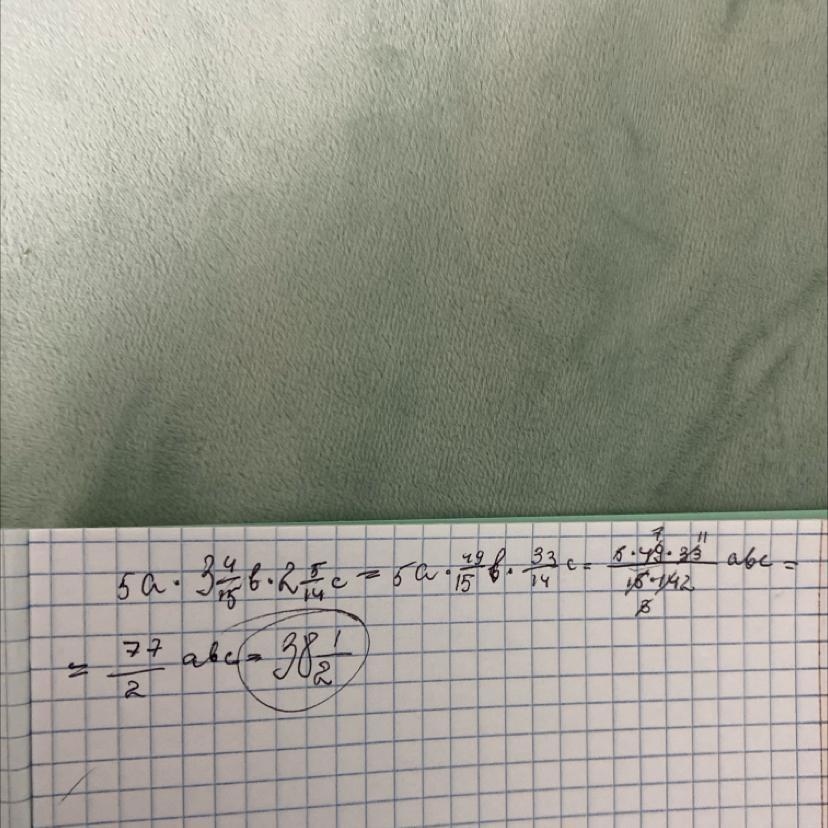 5a · 3 4/15 b · 2 5/14 c = 5a · 49/15 b · 33/14 c = 5·49·33/15·14 abc =
= 77/2 abc = 38 1/2